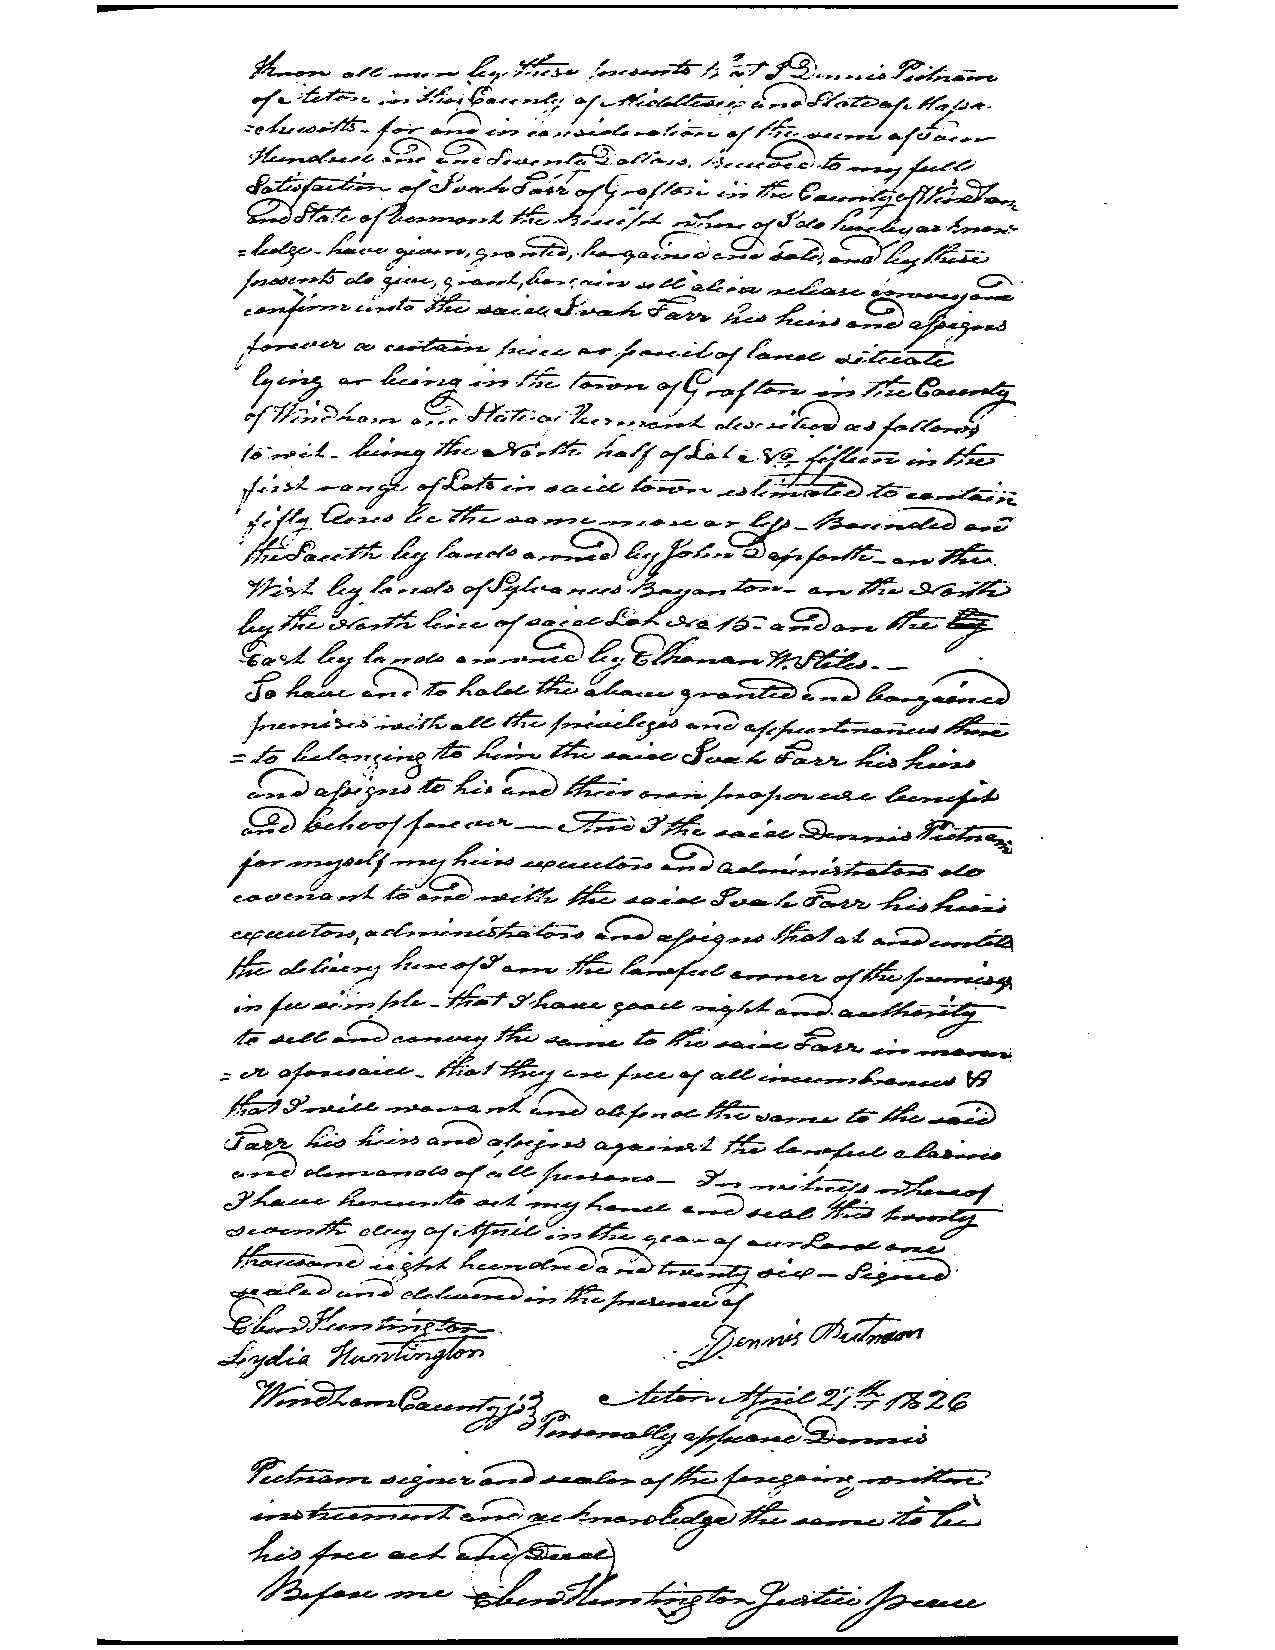 Know all men by these presents that I Dennis Putnam
of Acton in the County of Middlesex and State of Massa-
=chusetts for and in consideration of the sum of Four
Hundred and Seventy Dollars. Received to my full
Satisfaction of Ivah Farr of Grafton in the County of Windham
and State of Vermont the Receipt where of I do hereby acknow-
=ledge - have given, granted, bargained and sold, and by these
presents do give, grant, bargain sell alien release convey and
confirm unto the said Ivah Farr his heirs and assigns
forever a certain piece or parcel of land situate
lying or being in the town of Grafton in the County
of Windham and State of Vermont described as follows
to wit - being the North half of Lot No fifteen in the
first range of Lots in said town estimated to contain
fifty Acres be the same more or less - Bounded on
the South by lands owned by John Danforth - on the
West by lands of Sylvanus Boyanton - on the North
by the North line of said Lot No 15 - and on the
East by lands owned by Elhanan W. Stiles. -
To have and to hold the above granted and bargained
premises with all the privileges and appurtenances there
=to belonging to him the said Ivah Farr his heirs
and assigns to his and their own proper use benefit
and behoof forever — And I the said Dennis Putnam
for myself my heirs executors and administrators do
covenant to and with the said Ivah Farr his heirs
executors, administrators and assigns that at and until
the delivery hereof I am the lawful owner of the premises
in fee simple - that I have good right and authority
to sell and convey the same to the said Farr in mann
=er aforesaid - that they are free of all incumbrances &
that I will warrant and defend the same to the said
Farr his heirs and assigns against the lawful claims
and demands of all persons - In witness whereof
I have hereunto set my hand and seal this twenty
seventh day of April in the year of our Lord one
thousand eight hundred and twenty six - Signed
sealed and delivered in the presence of
Eben Huntington
Lydia Huntington Dennis Putnam
Windham County ss Acton April 27th 1826
Personally appeared Dennis
Putnam signer and sealer of the foregoing written
instrument and acknowledge the same to be
his free act and Deed
Before me Eben Huntington Justice Peace